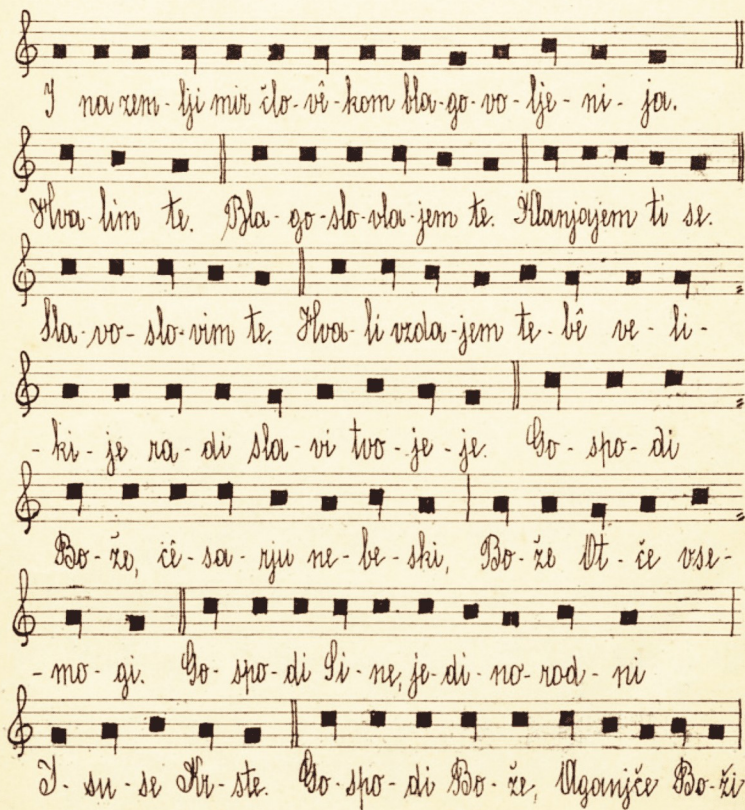 I na zem - lji mir člo - vê - kom bla - go - vo - lje - ni - ja.
Hva - lim te. Bla - go - slo - vla - jem te. Klanjajem ti se.
Sla - vo - slo - vim te. Hva - li vzda - jem te - bê ve - li -
- ki - je ra - di sla - vi tvo - je - je. Go - spo - di
Bo - že, cê - sa - rju ne - be - ski, Bo - že Ot - če vse -
- mo - gi. Go - spo - di Si - ne, je - di - no - rod - ni
I - su - se Kr - ste. Go - spo - di Bo - že, Aganjče Bo - ži